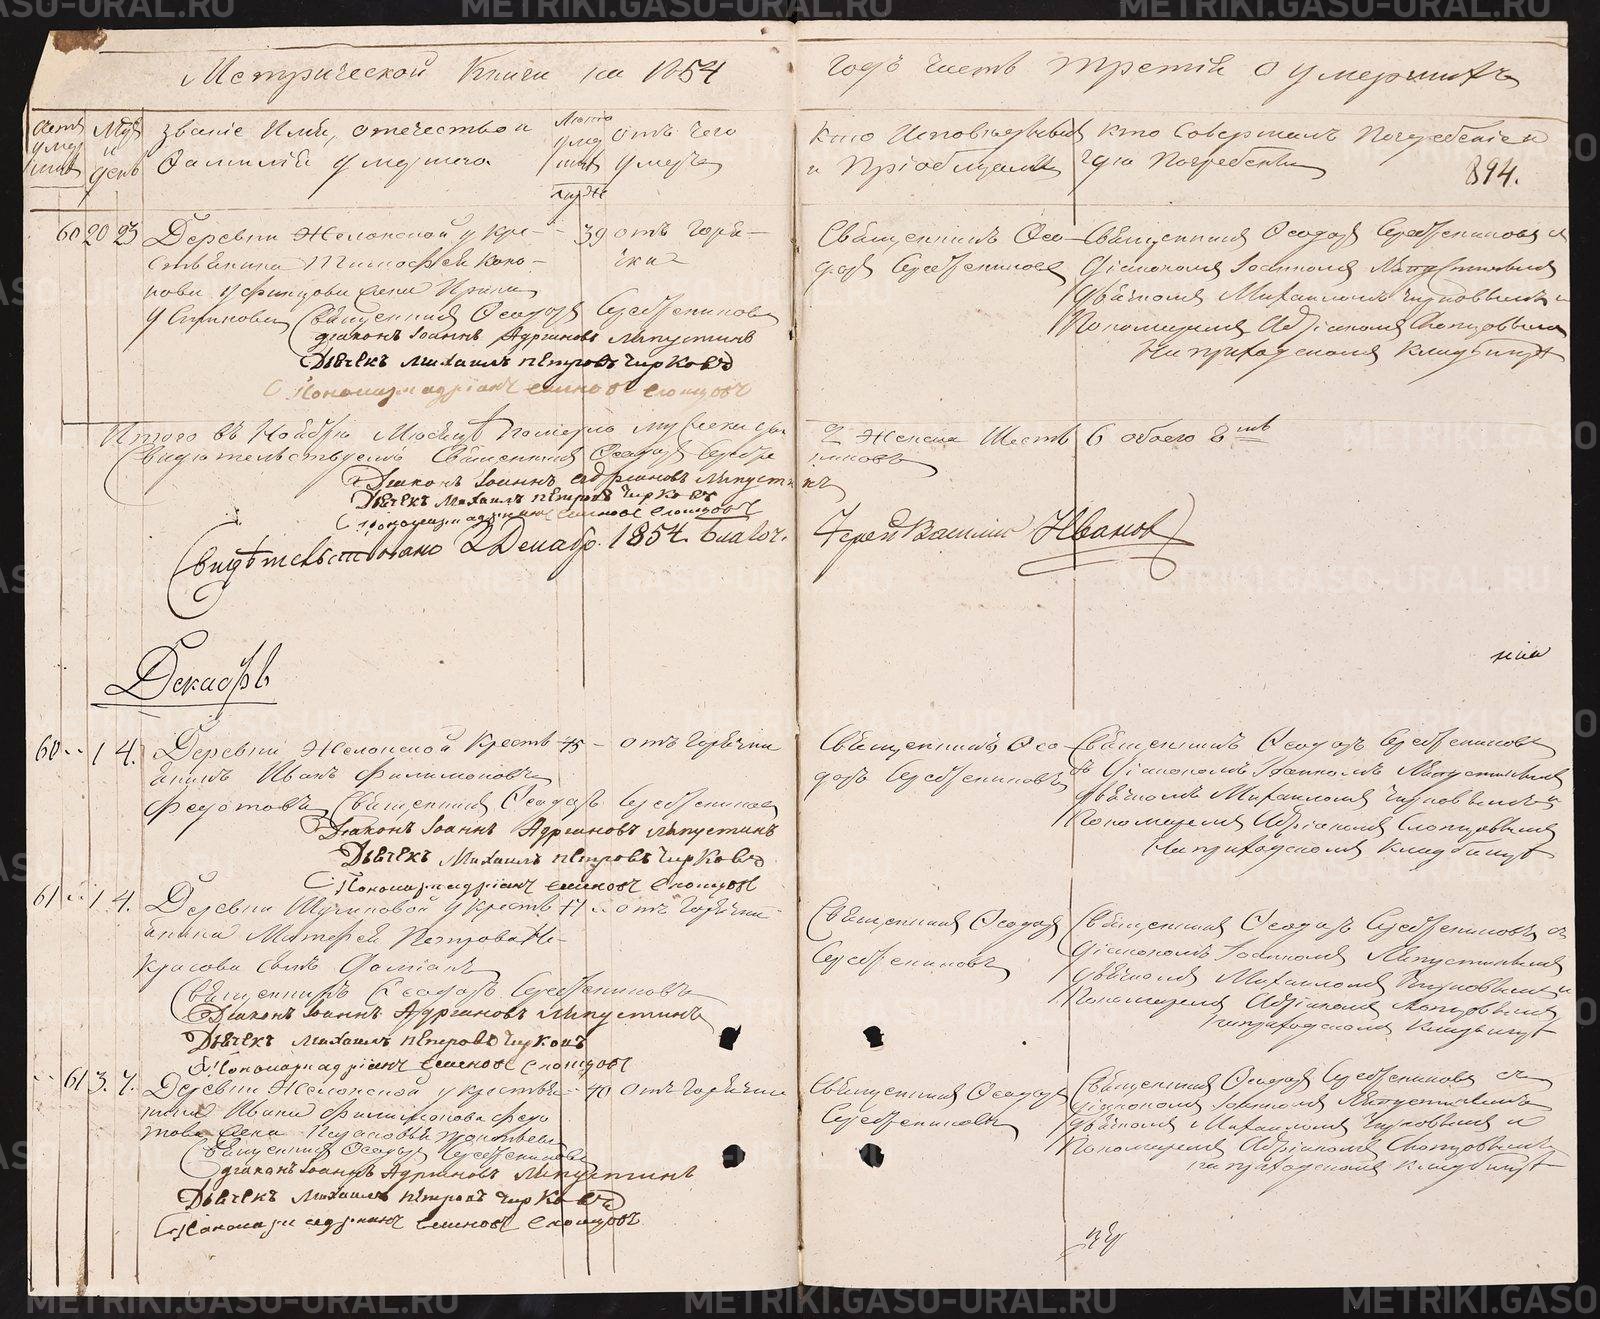 Метрической Книги на 1854
годъ часть третiя о умершихъ
Званiе Имя, отечество и
Фамилiя умершаго
отъ чего
умеръ
Кто Исповѣдывалъ
и Прiобщалъ
Кто Совершалъ Погребенiе и
гдѣ Погребены
894.
60 20 23 Деревни Желонской у кре-
39 отъ горя-
чки
стьянина Тимофея
жена Ирина
Священникъ Ѳеодоръ Серебрениковъ
Дiаконъ Iоаннъ Адрiановъ Лапустинъ
Дьячекъ Михаилъ Петровъ Чирковъ
Пономарь Адрiанъ Семеновъ Слопцовъ
Священникъ Ѳео-
доръ Серебрениковъ
Священникъ Ѳеодоръ Серебрениковъ съ
Дiакономъ Iоанномъ Лапустинымъ
дьячкомъ Михаиломъ Чирковымъ и
Пономаремъ Адрiаномъ Слопцовымъ
На приходскомъ кладбищѣ
Итого въ Ноябрѣ Мѣсяцѣ померло мужеска
2 женска Шесть 6 обоего 8
Свидѣтельствуемъ Священникъ Ѳеодоръ Серебре
никовъ
Дiаконъ Iоаннъ Адрiановъ Лапустинъ
Дьячекъ Михаилъ Петровъ Чирковъ
Пономарь Адрiанъ Семеновъ Слопцовъ
Свидѣтельствовано 2 Декабр. 1854. Благоч.
Iерей Василiй Ивановъ
Декабрь
60 1 4. Деревни Желонской Кресть- 45 - отъ горячки
янинъ Иванъ Филимоновъ
Федотовъ Священникъ Ѳеодоръ Серебрениковъ
Дiаконъ Iоаннъ Адрiановъ Лапустинъ
Дьячекъ Михаилъ Петровъ Чирковъ
Пономарь Адрiанъ Семеновъ Слопцовъ
Священникъ Ѳео-
доръ Серебрениковъ
Священникъ Ѳеодоръ Серебрениковъ
съ Дiакономъ Iоанномъ Лапустинымъ
дьячкомъ Михаиломъ Чирковымъ и
Пономаремъ Адрiаномъ Слопцовымъ
На приходскомъ кладбищѣ
61 1 4. Деревни у кресть отъ горячки
янина Петрова Не-
красова сынъ Дамiанъ
Священникъ Ѳеодоръ Серебрениковъ
Дiаконъ Iоаннъ Адрiановъ Лапустинъ
Дьячекъ Михаилъ Петровъ Чирковъ
Пономарь Адрiанъ Семеновъ Слопцовъ
Священникъ Ѳеодоръ
Серебрениковъ
Священникъ Ѳеодоръ Серебрениковъ съ
Дiакономъ Iоанномъ Лапустинымъ
дьячкомъ Михаиломъ Чирковымъ и
Пономаремъ Адрiаномъ Слопцовымъ
на приходскомъ кладбищѣ
61 3. 7. Деревни Желонской у крестья- 40 отъ горячки
нина Ивана Филимонова Федо
това жена
Священникъ Ѳеодоръ Серебрениковъ
Дiаконъ Iоаннъ Адрiановъ Лапустинъ
Дьячекъ Михаилъ Петровъ Чирковъ
Пономарь Адрiанъ Семеновъ Слопцовъ
Священникъ Ѳеодоръ
Серебрениковъ
Священникъ Ѳеодоръ Серебрениковъ съ
дiакономъ Iоанномъ Лапустинымъ
дьячкомъ Михаиломъ Чирковымъ и
Пономаремъ Адрiаномъ Слопцовымъ
на приходскомъ кладбищѣ
METRIKI.GASO-URAL.RU